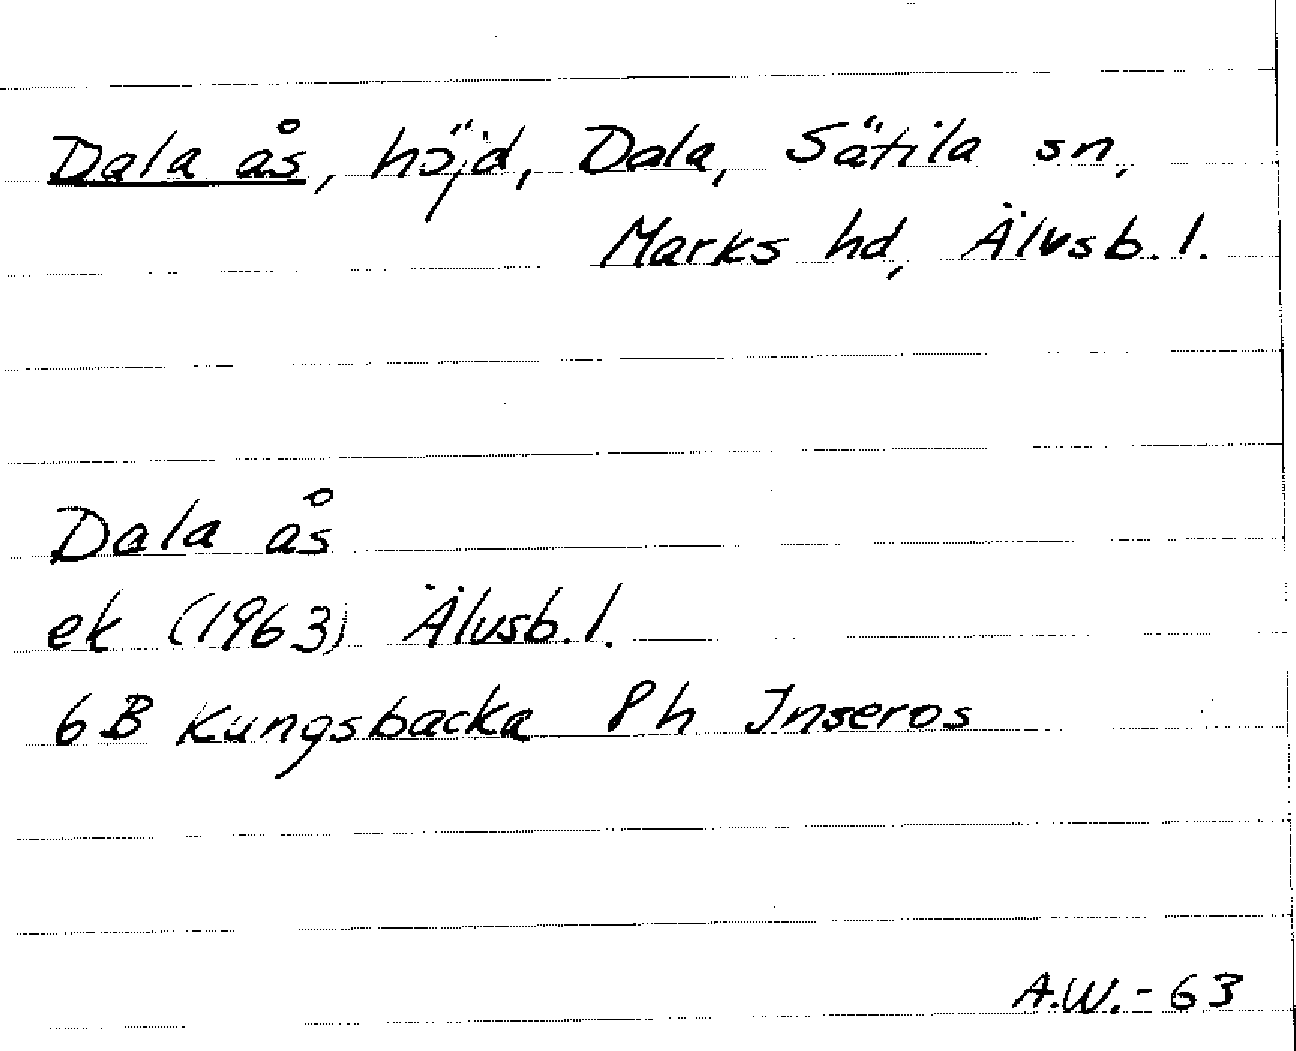 Dala ås, höjd, Dala, Sätila sn,
Marks hd, Älvsb. l.
Dala ås
ek (1963) Älvsb. l.
6B Kungsbacka 8h Inseros
A.W.-63